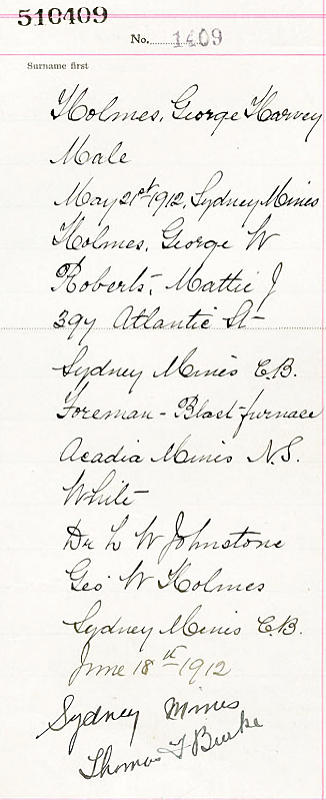 510409
No. 1409
Surname first
Holmes, George Harvey
Male
May 21st 1912, Sydney Mines
Holmes, George W
Roberts, Mattie J
397 Atlantic St
Sydney Mines C.B.
Foreman - Blast-furnace
Acadia Mines N.S.
White
Dr L W Johnstone
Geo W Holmes
Sydney Mines C.B.
June 18th 1912
Sydney Mines
Thomas F Burke